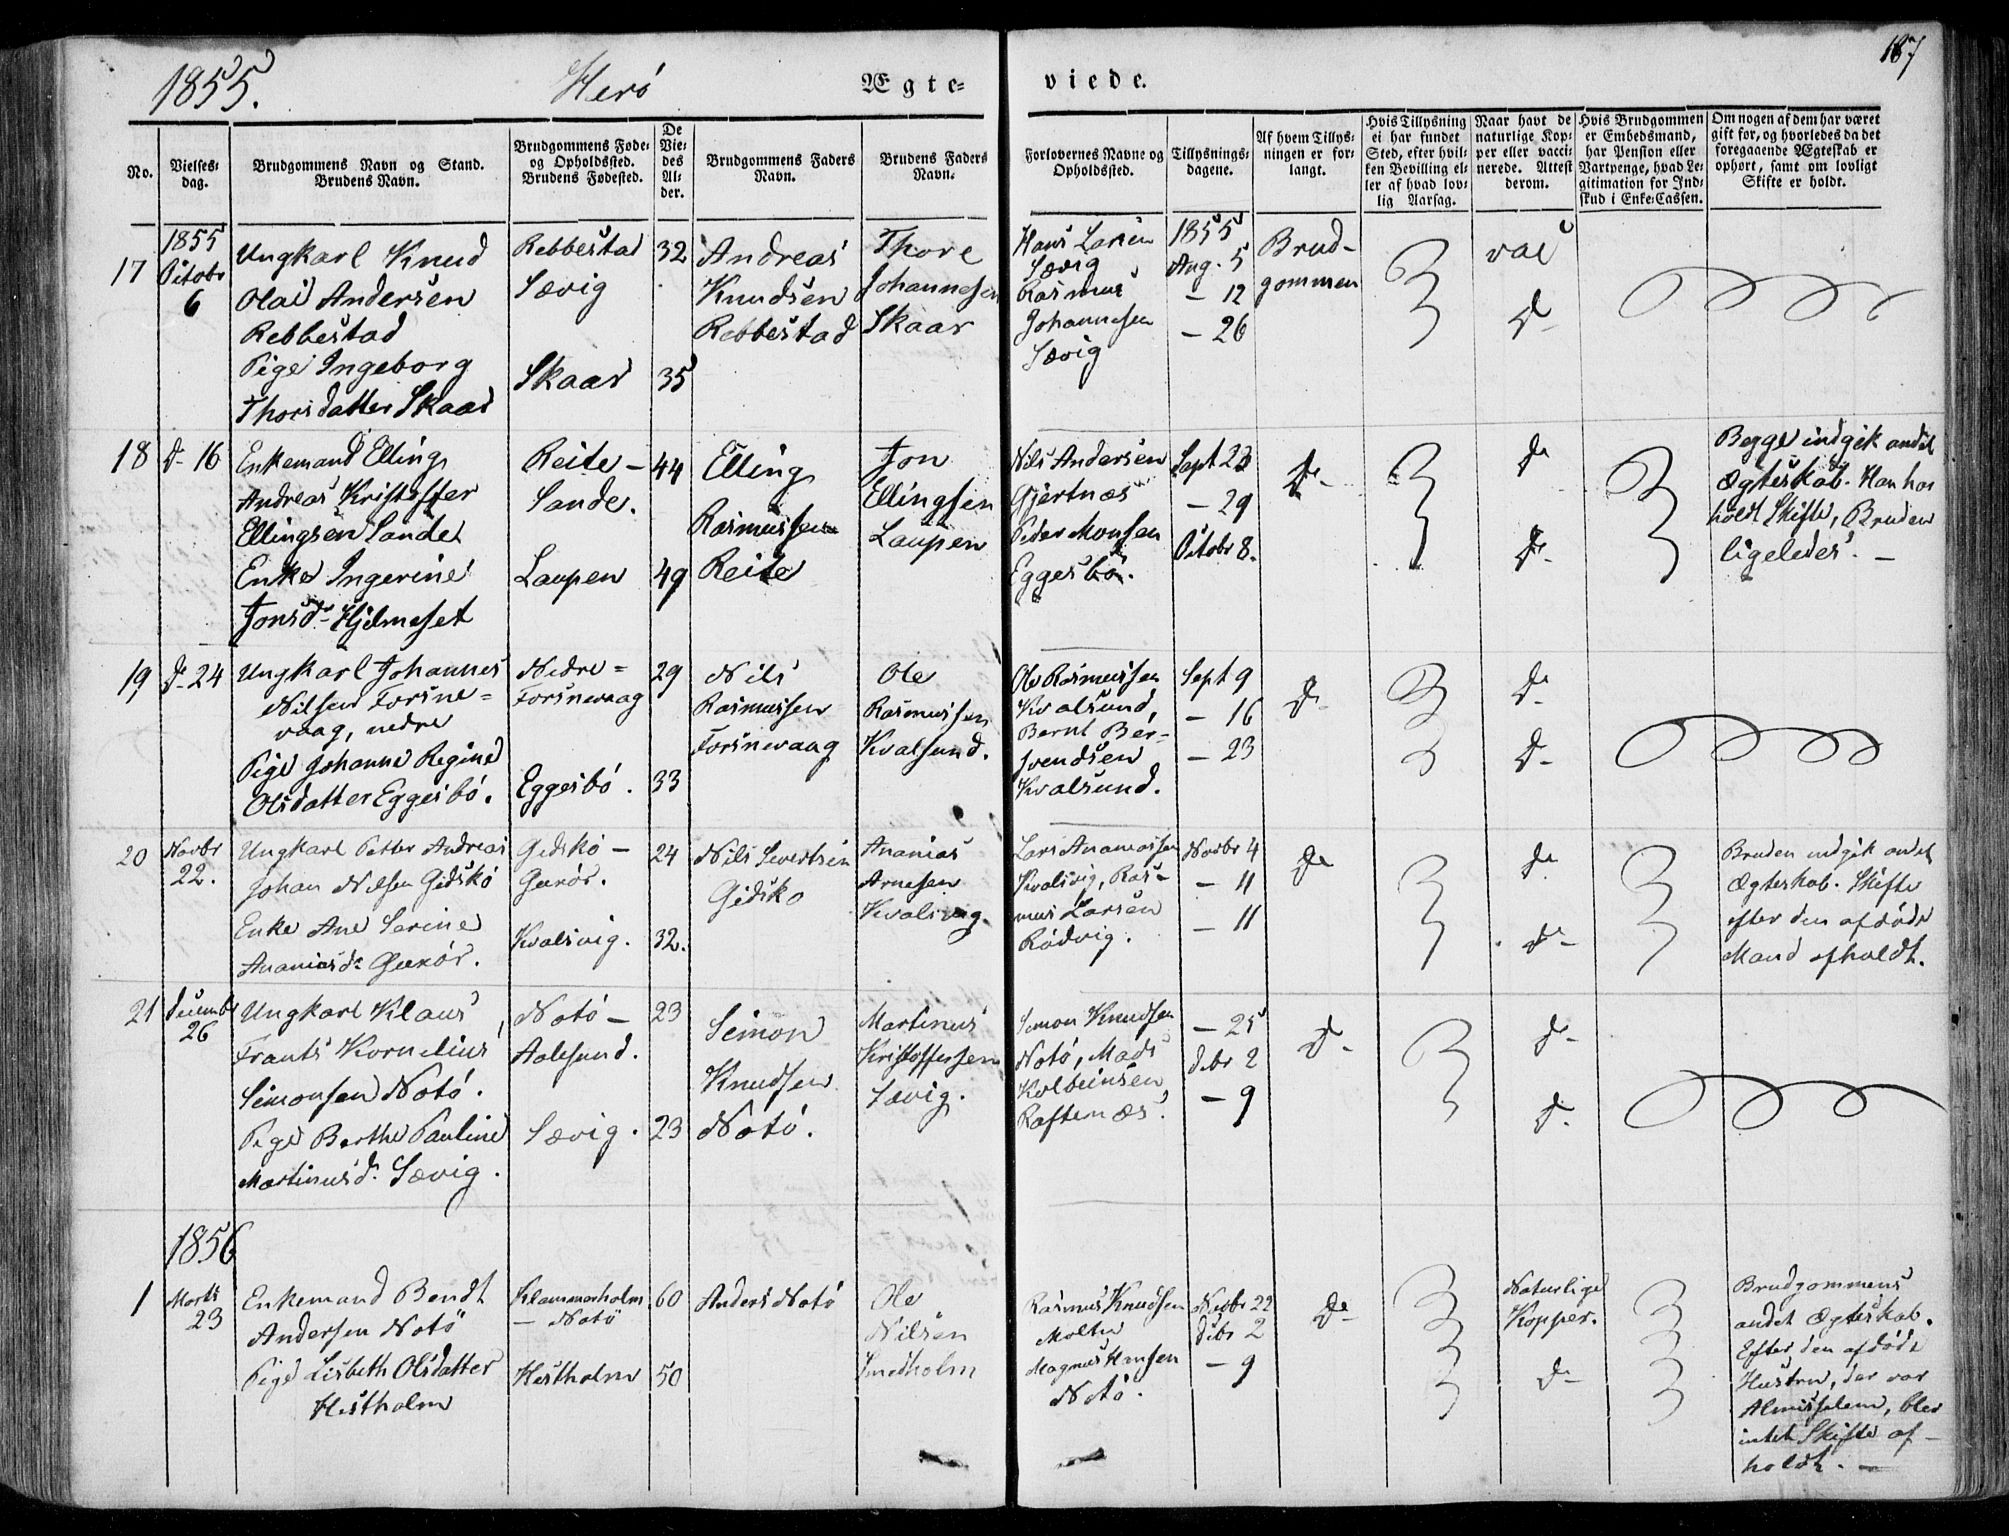 1855.
Herö
Ægte-
viede.
187
No.
Vielses-
dag.
Brudgommens Navn og Stand.
Brudens Navn.
Brudgommens Føde-
og Opholdssted.
Brudens Fødested.
De
Vie-
des
Al-
der.
Brudgommens Faders
Navn.
Brudens Faders
Navn.
Forlovernes Navne og
Opholdssted.
Tillysnings-
dagene.
Af hvem Tillys-
ningen er for-
langt.
Hvis Tillysning
ei har fundet
Sted, efter hvil-
ken Bevilling el-
ler af hvad lov-
lig Aarsag.
Naar havt de
naturlige Kop-
per eller vacci-
nerede. Attest
derom.
Hvis Brudgommen
er Embedsmand,
har Pension eller
Vartpenge, hvad Le-
gitimation for Ind-
skud i Enke-Cassen.
Om nogen af dem har været
gift før, og hvorledes da det
foregaaende Ægteskab er
ophørt, samt om lovligt
Skifte er holdt.
17
1855
Octobr
6
Ungkarl Knud
Olai Andersen
Rebbestad
Pige Ingeborg
Thorsdatter Skaar
Rebbestad
Sævig
Skaar
32
35
Andreas
Knudsen
Rebbestad
Thore
Johannesen
Skaar
Hans Larsen
Sævig
Rasmus
Johannesen
Sævig
1855
Aug. 5
- 12
- 26
Brud-
gommen
vac
do
18
do 16
Enkemand Elling
Andreas Kristoffer
Ellingsen Sande
Enke Ingerine
Jonsd. Hjelmeset
Reite -
Sande.
Laupen
44
49
Elling
Rasmussen
Reite
Jon
Ellingsen
Laupen
Nils Andersen
Gjertnæs
Peder Monsen
Eggesbö.
Sept 23
- 29
Octobr 8.
do
do
do
Begge indgik andet
Ægteskab. Han har
holdt Skifte, Bruden
ligeledes. -
19
do 24
Ungkarl Johannes
Nilsen Forsne-
vaag, nedre
Pige Johanne Regine
Olsdatter Eggesbö.
Nedre-
Forsnevaag
Eggesbö.
29
33
Nils
Rasmussen
Forsnevaag
Ole
Rasmussen
Kvalsund.
Ole Rasmussen
Kvalsund,
Bernt Ber-
Svendsen
Kvalsund.
Sept 9
- 16
- 23
do
do
do
20
Novbr
22.
Ungkarl Petter Andreas
Johan Nilsen Gidskö
Enke Ane Serine
Ananiasd. Gurör.
Gidskö -
Gurör.
Kvalsvig.
24
32.
Nils Sivertsen
Gidskö
Ananias
Arnesen
Kvalsvig.
Lars Ananiassen
Kvalsvig, Ras-
mus Larsen
Rödvig.
Novbr 4
- 11
- 11
do
do
do
Bruden indgik andet
Ægteskab. Skifte
efter den afdöde
Mand afholdt.
21
Decembr
26
Ungkarl Klaus
Frants Kornelius
Simonsen Notö.
Pige Berthe Pauline
Martinusd. Sævig.
Notö -
Aalesund.
Sævig.
23
23
Simon
Knudsen
Notö.
Martinus
Kristoffersen
Sævig.
Simon Knudsen
Notö, Mads
Kolbeinsen
Raftenæs.
- 25
Debr 2
- 9
do
do
do
1856
1
Marts
23
Enkemand Bendt
Andersen Notö
Pige Lisbeth Olsdatter
Hestholm
Klammerholm
- Notö
Hestholm
60
50
Anders Notö
Ole
Nilsen
Smedholm
Rasmus Knudsen
Moltu
Magnus Hansen
Notö.
Novbr 22
Debr 2
- 9
do
Naturlige
Kopper.
do
Brudgommens
andet Ægteskab.
Efter den afdöde
Hustru, der var
Almisselem, blev
intet Skifte af-
holdt. -